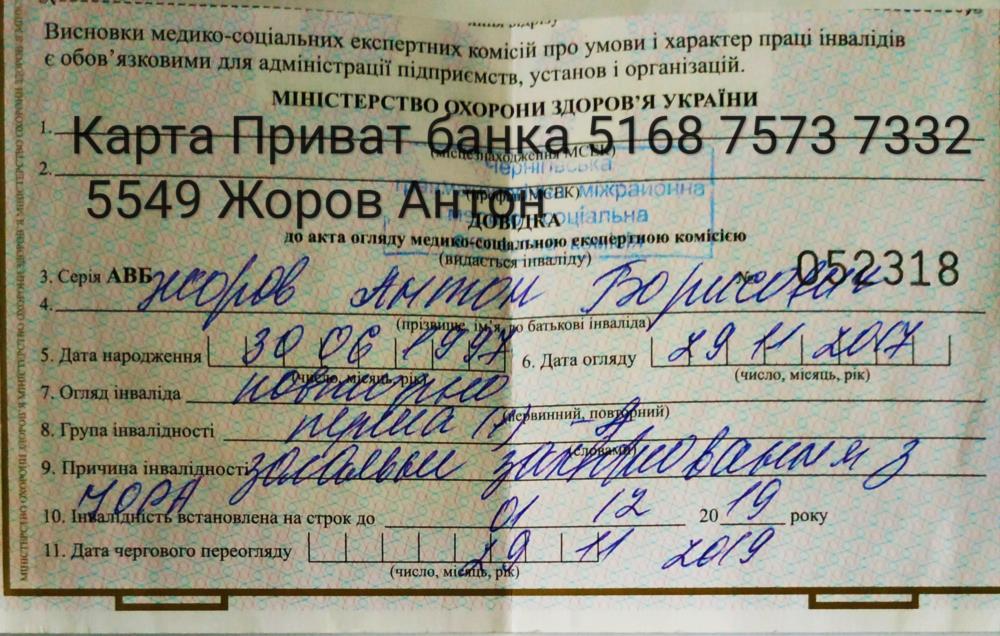 Висновки медико-соціальних експертних комісій про умови і характер праці інвалідів
є обов’язковими для адміністрації підприємств, установ і організацій.
МІНІСТЕРСТВО ОХОРОНИ ЗДОРОВ’Я УКРАЇНИ
1.
Карта Приват банка 5168 7573 7332
(місцезнаходження МСЕК)
2.
5549 Жоров Антон
міжрайонна
соціальна
ДОВІДКА
до акта огляду медико-соціальною експертною комісією
(видається інваліду)
3. Серія АВБ № 052318
4. Жоров Антон Борисович
(прізвище, ім’я, по батькові інваліда)
5. Дата народження 30 06 1997 6. Дата огляду 29 11 2017
(число, місяць, рік) (число, місяць, рік)
7. Огляд інваліда повторно
(первинний, повторний)
8. Група інвалідності перша
(словами)
9. Причина інвалідності загальне захворювання з
10. Інвалідність встановлена на строк до 01 12 2019 року
11. Дата чергового переогляду 29 11 2019
(число, місяць, рік)